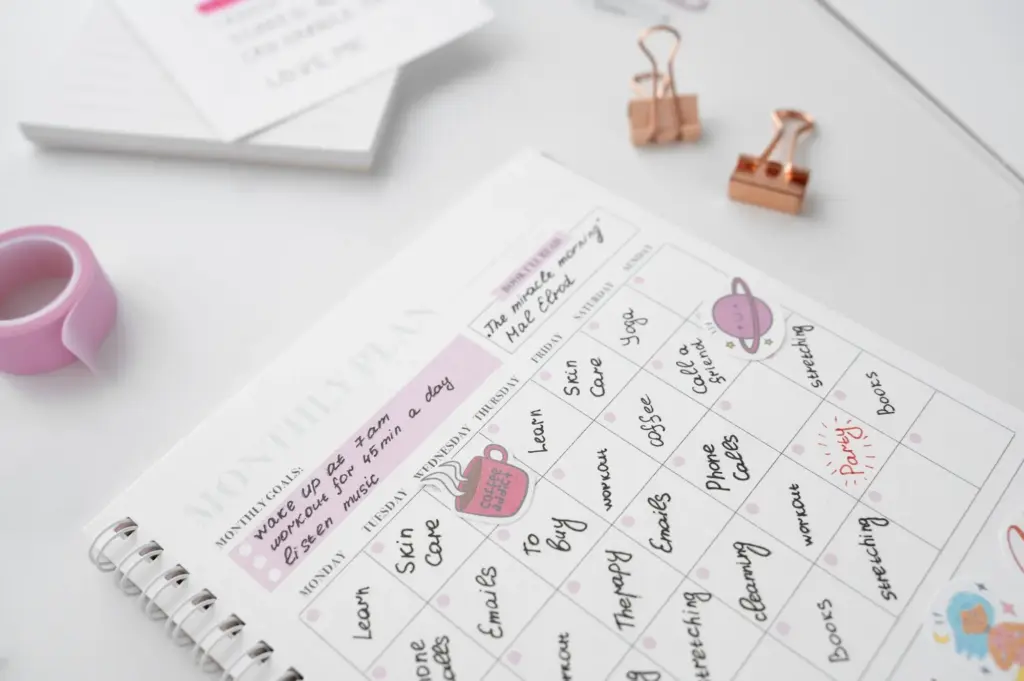 LOVE ME
MONTHLY PLAN
MONTHLY GOALS:
wake up at 7am
workout for 45min a day
listen music
"The miracle morning"
Hal Elrod
MONDAY TUESDAY WEDNESDAY THURSDAY FRIDAY SATURDAY SUNDAY
Learn
Skin
Care
coffee
addict
Learn
Skin
Care
Yoga
hone
alls
Emails
To
Buy
workout
coffee
Call a
friend
rkout
Therapy
Emails
Phone
Calls
stretching
g
stretching
cleaning
workout
Party
Books
Books
stretching